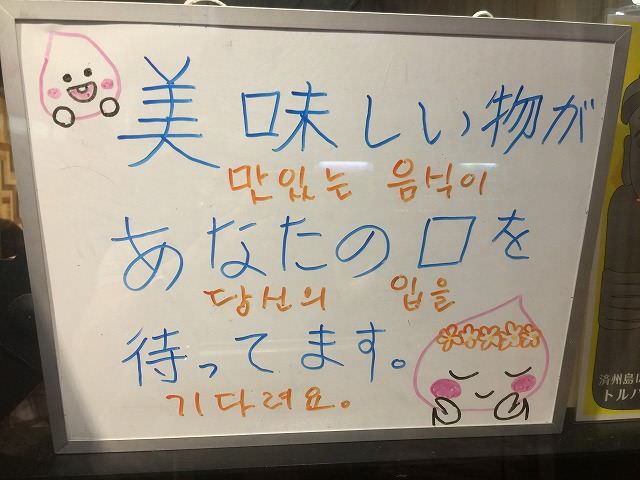 美味しい物が
맛있는 음식이
あなたの口を
당신의 입을
待ってます。
기다려요。
済州島に
トルハ